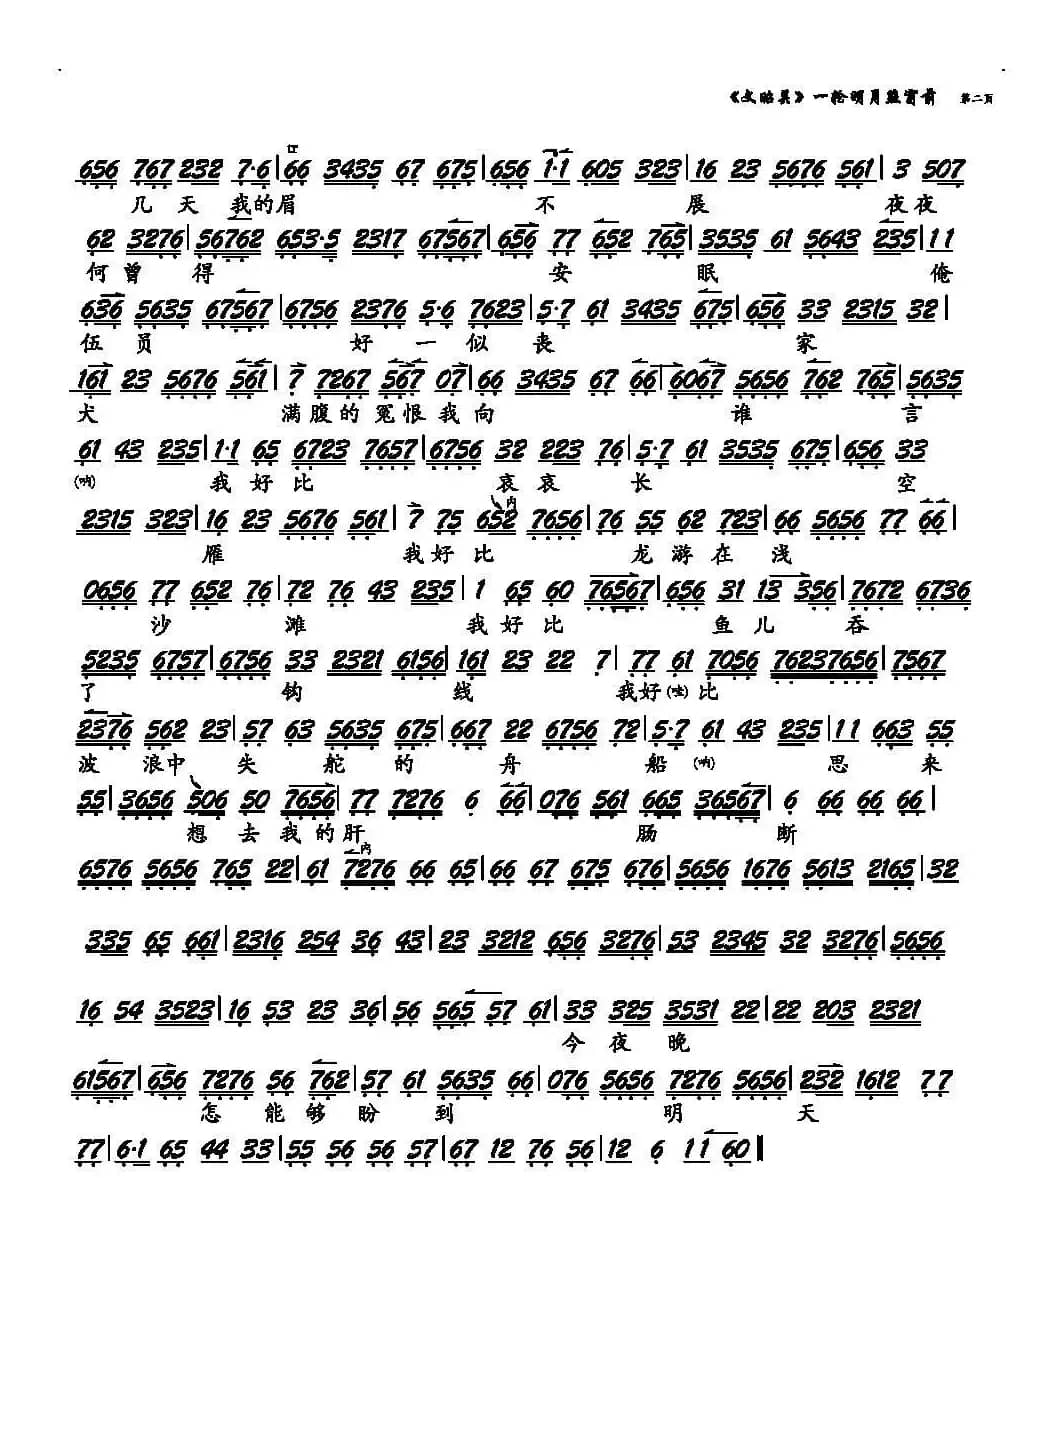 《文昭关》一轮明月照窗前 第二页
656 767 232 7·6|66 3435 67 675|656 1·1 605 323|16 23 5676 561|3 507
几天我的眉不展夜夜
62 3276|56762 653·5 2317 67567|656 77 652 765|3535 61 5643 235|11
何曾得安眠俺
636 5635 67567|6756 2376 5·6 7623|5·7 61 3435 675|656 33 2315 32|
伍员好一似丧家
161 23 5676 561|7 7267 567 07|66 3435 67 66|6067 5656 762 765|5635
犬满腹的冤恨我向谁言
61 43 235|1·1 65 6723 7657|6756 32 223 76|5·7 61 3535 675|656 33
(呐)我好比哀哀长空
2315 323|16 23 5676 561|7 75 652 7656|76 55 62 723|66 5656 77 66|
内
雁我好比龙游在浅
0656 77 652 76|72 76 43 235|1 65 60 76567|656 31 13 356|7672 6736
沙滩我好比鱼儿吞
5235 6757|6756 33 2321 6156|161 23 22 7|77 61 7056 76237656|7567
了钩线我好(哇)比
2376 562 23|57 63 5635 675|667 22 6756 72|5·7 61 43 235|11 663 55
波浪中失舵的舟船(呐)思来
55|3656 506 50 7656|77 7276 6 66|076 561 665 36567|6 66 66 66|
想去我的肝肠断
内
6576 5656 765 22|61 7276 66 65|66 67 675 676|5656 1676 5613 2165|32
335 65 661|2316 254 36 43|23 3212 656 3276|53 2345 32 3276|5656
16 54 3523|16 53 23 36|56 565 57 61|33 325 3531 22|22 203 2321
今夜晚
61567|656 7276 56 762|57 61 5635 66|076 5656 7276 5656|232 1612 77
怎能够盼到明天
77|6·1 65 44 33|55 56 56 57|67 12 76 56|12 6 11 60‖